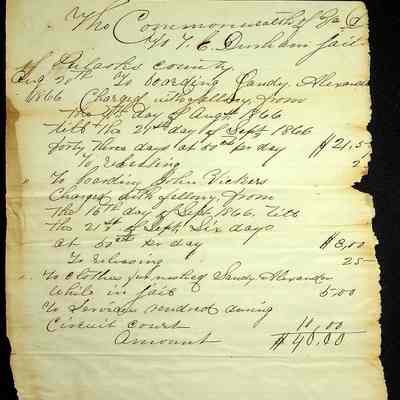 The Commonwealth of Ky
To T. C. Dunham Jail
of Pulaski county
Aug 20th To boarding Sandy Alexander
1866 Charged with fellony from
the day of Augst 1866
till the 21st day of Sept 1866
forty three days at 50cts per day $21.5
To Releasing 2
" To boarding John Vickers
Charged with fellony from
the 16th day of Sept 1866. Till
the 21st of Sept. Six days
at 50cts per day $3,00
To Releasing 25
" To Clothes furnished Sandy Alexander
while in jail 5.00
To Services rendred during
Circuit court 10,00
Amount $40.00